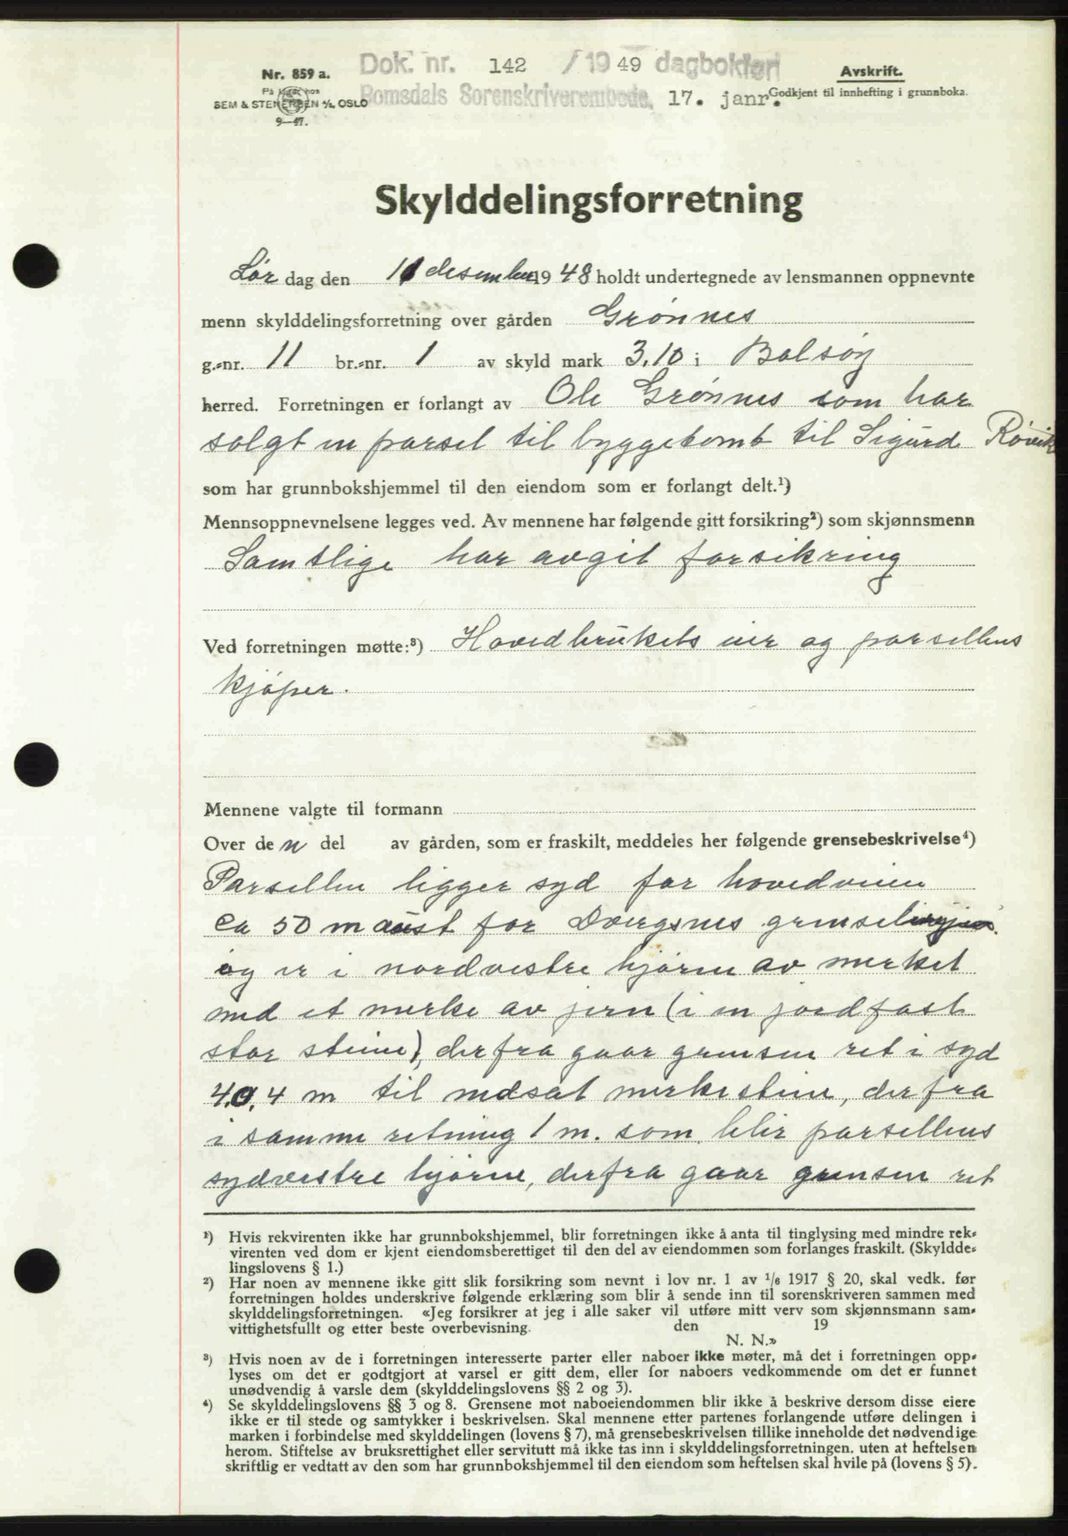 Nr. 859 a.
Dok. nr. 142 / 1949 dagbokført
Avskrift.
På lager hos
SEM & STENERSEN A/S, OSLO
9—47.
Romsdals Sorenskriverembede, 17. janr.
Godkjent til innhefting i grunnboka.
Skylddelingsforretning
Lør dag den 11 desember 1948 holdt undertegnede av lensmannen oppnevnte
menn skylddelingsforretning over gården Grønnes
g.-nr. 11 br.-nr. 1 av skyld mark 3.10 i Bolsøy
herred. Forretningen er forlangt av Ole Grønnes som har
solgt en parsel til byggetomt til Sigurd Røvik
som har grunnbokshjemmel til den eiendom som er forlangt delt.¹)
Mennsoppnevnelsene legges ved. Av mennene har følgende gitt forsikring²) som skjønnsmenn
Samtlige har avgit forsikring
Ved forretningen møtte:³) Hovedbrukets eier og parsellens
kjøper.
Mennene valgte til formann
Over de n del av gården, som er fraskilt, meddeles her følgende grensebeskrivelse⁴)
Parsellen ligger syd for hovedveien
ca 50 m aust for Dvergsnes grenselinje
og er i nordvestre hjørne av merket
med et merke av jern (i en jordfast
stor steine), derfra gaar grensen ret i syd
40.4 m til nedsat merkesteine, derfra
i samme retning 1 m. som blir parsellens
sydvestre hjørne, derfra gaar grensen ret
¹) Hvis rekvirenten ikke har grunnbokshjemmel, blir forretningen ikke å anta til tinglysing med mindre rek-
virenten ved dom er kjent eiendomsberettiget til den del av eiendommen som forlanges fraskilt. (Skyldde-
lingslovens § 1.)
²) Har noen av mennene ikke gitt slik forsikring som nevnt i lov nr. 1 av ¹/₆ 1917 § 20, skal vedk. før
forretningen holdes underskrive følgende erklæring som blir å sende inn til sorenskriveren sammen med
skylddelingsforretningen. «Jeg forsikrer at jeg i alle saker vil utføre mitt verv som skjønnsmann sam-
vittighetsfullt og etter beste overbevisning. den 19
N. N.»
³) Hvis noen av de i forretningen interesserte parter eller naboer ikke møter, må det i forretningen opp-
lyses om det er godtgjort at varsel er gitt dem, eller for naboers vedkommende om det er funnet
unødvendig å varsle dem (skylddelingslovens §§ 2 og 3).
⁴) Se skylddelingslovens §§ 3 og 8. Grensene mot naboeiendommen blir ikke å beskrive dersom disse eiere
ikke er til stede og samtykker i beskrivelsen. Skal mennene etter partenes forlangende utføre delingen i
marken i forbindelse med skylddelingen (lovens § 7), må grensebeskrivelsen tillike inneholde det nødvendige
herom. Stiftelse av bruksrettighet eller servitutt må ikke tas inn i skylddelingsforretningen, uten at heftelsen
skriftlig er vedtatt av den som har grunnbokshjemmel til den eiendom som heftelsen skal hvile på (lovens § 5).